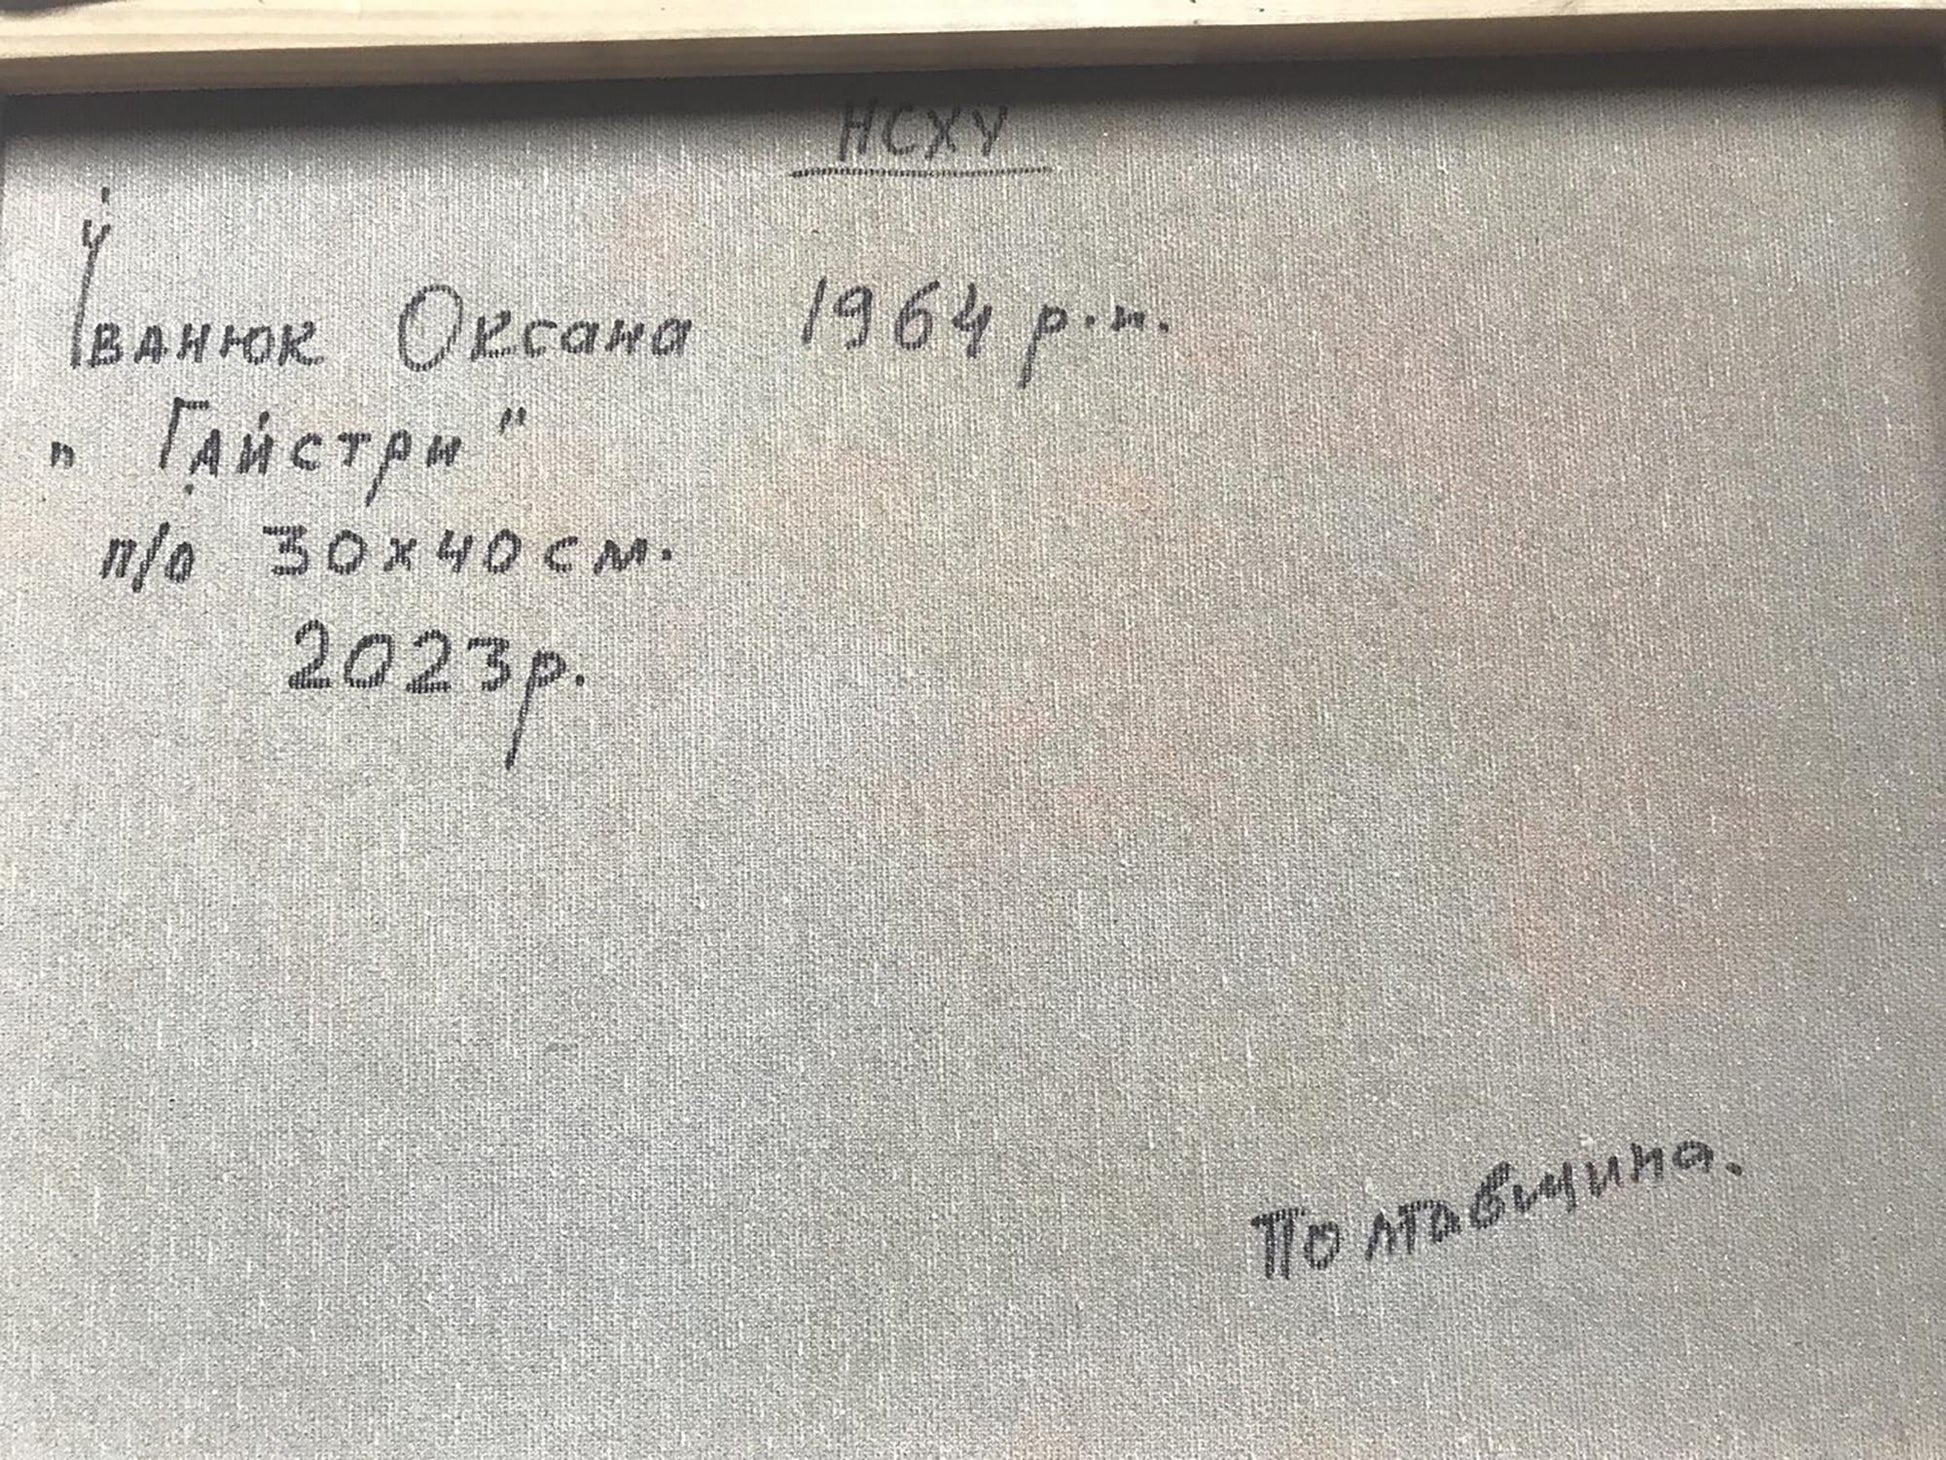 НСХУ
Іванюк Оксана 1964 р.н.
"Гайстри"
п/о 30х40см.
2023р.
Полтавщина.